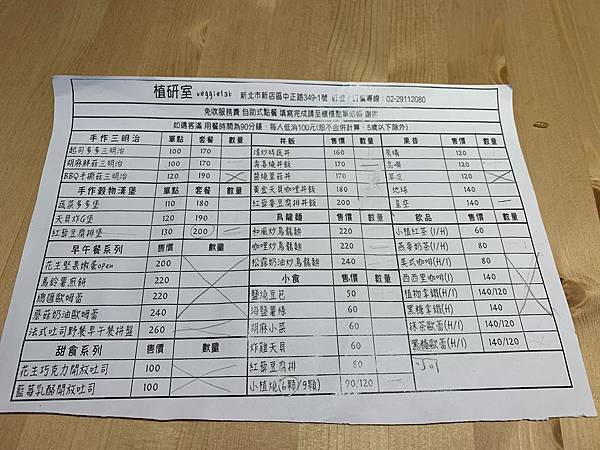 植研室 veggielab 新北市新店區中正路349-1號 訂位/訂餐專線：02-29112080
免收服務費 自助式點餐 填寫完成請至櫃檯點單結帳 謝謝
如遇客滿 用餐時間為90分鐘，每人低消100元(恕不合併計算，5歲以下除外)
手作三明治 單點 套餐 數量
起司多多三明治 100 170
胡麻鮮菇三明治 100 170
BBQ手撕菇三明治 120 190
手作穀物漢堡 單點 套餐 數量
蔬菜多多堡 110 180
天貝炸G堡 120 190
紅藜豆腐排堡 130 200
早午餐系列 售價 數量
花生堅果嫩蛋open 200
馬鈴薯煎餅 220
總匯歐姆蛋 220
蘑菇奶油歐姆蛋 240
法式吐司野餐早午餐拼盤 260
甜食系列 售價 數量
花生巧克力開放吐司 100
藍莓乳酪開放吐司 100
丼飯 售價 數量
清炒時蔬丼 160
壽喜燒丼飯 180
鹽燒菫菇丼 170
黃金天貝咖哩丼飯 180
紅藜麥豆腐排丼飯 200
烏龍麵 售價 數量
和風炒烏龍麵 220
咖哩炒烏龍麵 220
松露奶油炒烏龍麵 240
小食 售價 數量
鹽燒豆包 50
海鹽薯條 60
胡麻小菜 60
炸雞天貝 60
紅藜豆腐排 80
小植燒(6顆/9顆) 90/120
果昔 售價 數量
晨曦 120
島嶼 120
草皮 120
地球 140
星空 140
飲品 售價 數量
小植紅茶(I/H) 60
燕麥奶茶(I/H) 80
美式咖啡(I/H) 80
西西里咖啡(I) 140
植物拿鐵(H/I) 140/120
黑糖拿鐵(H) 140
抹茶歐蕾(H/I) 140/120
黑糖歐蕾(H/I) 140/120